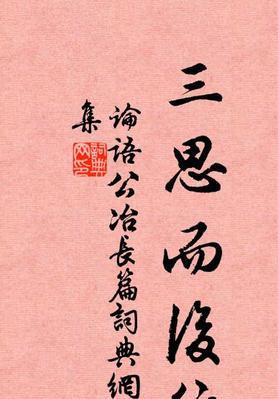 三思而後
論語公冶長篇詞典網
集